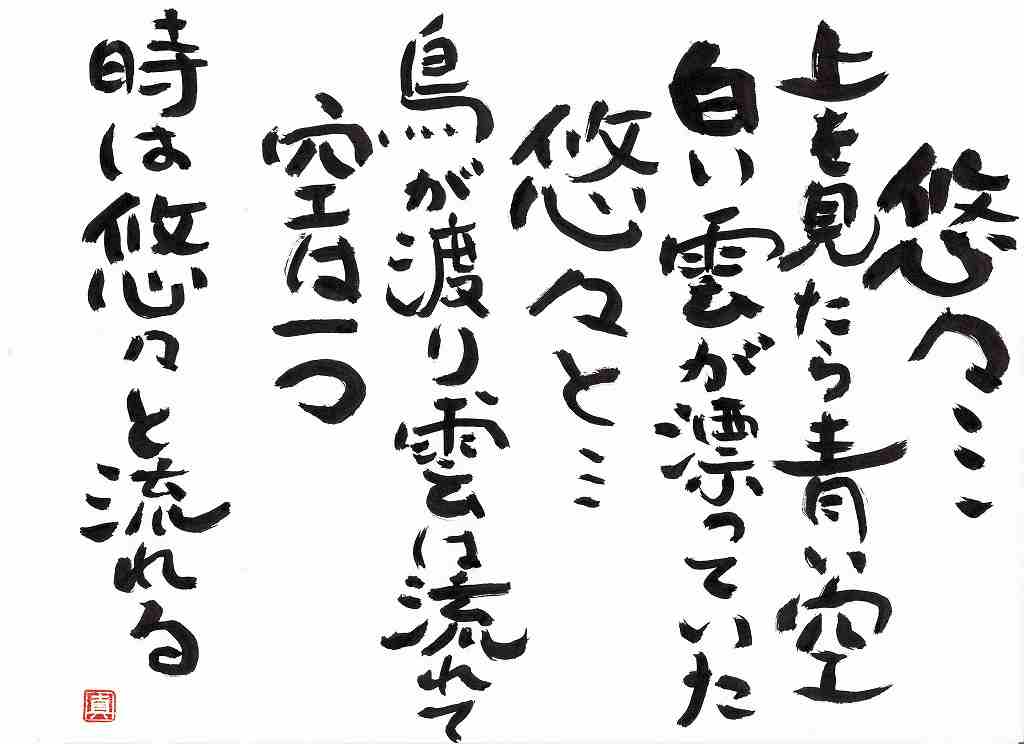 悠々…
上を見たら青い空
白い雲が漂っていた
悠々と…
鳥が渡り雲は流れて
空は一つ
時は悠々と流れる
真